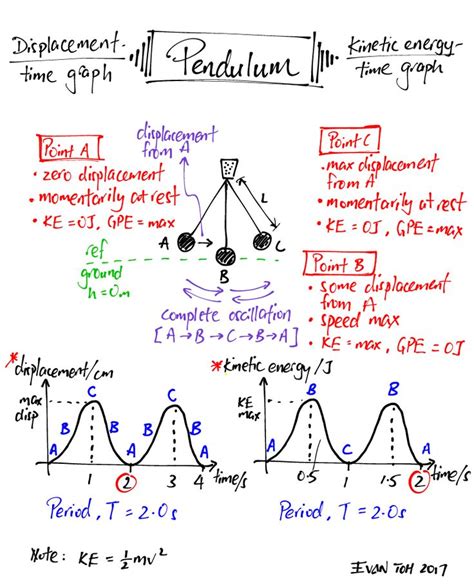 Displacement-
time graph
Pendulum
Kinetic energy-
time graph
displacement
from A
Point A
• zero displacement
• momentarily at rest
• KE = 0J, GPE = max
Point C
• max displacement
from A
• momentarily at rest
• KE = 0J, GPE = max
L
A
B
C
ref
ground
h = 0m
Point B
• some displacement
from A
• speed max
• KE = max, GPE = 0J
complete oscillation
[A→B→C→B→A]
*displacement/cm
max
disp
A
B
C
B
A
B
C
B
A
1
2
3
4
time/s
Period, T = 2.0s
*kinetic energy/J
KE
max
A
B
C
B
A
0.5
1
1.5
2
time/s
Period, T = 2.0s
Note: KE = ½mv²
EVAN TOH 2017